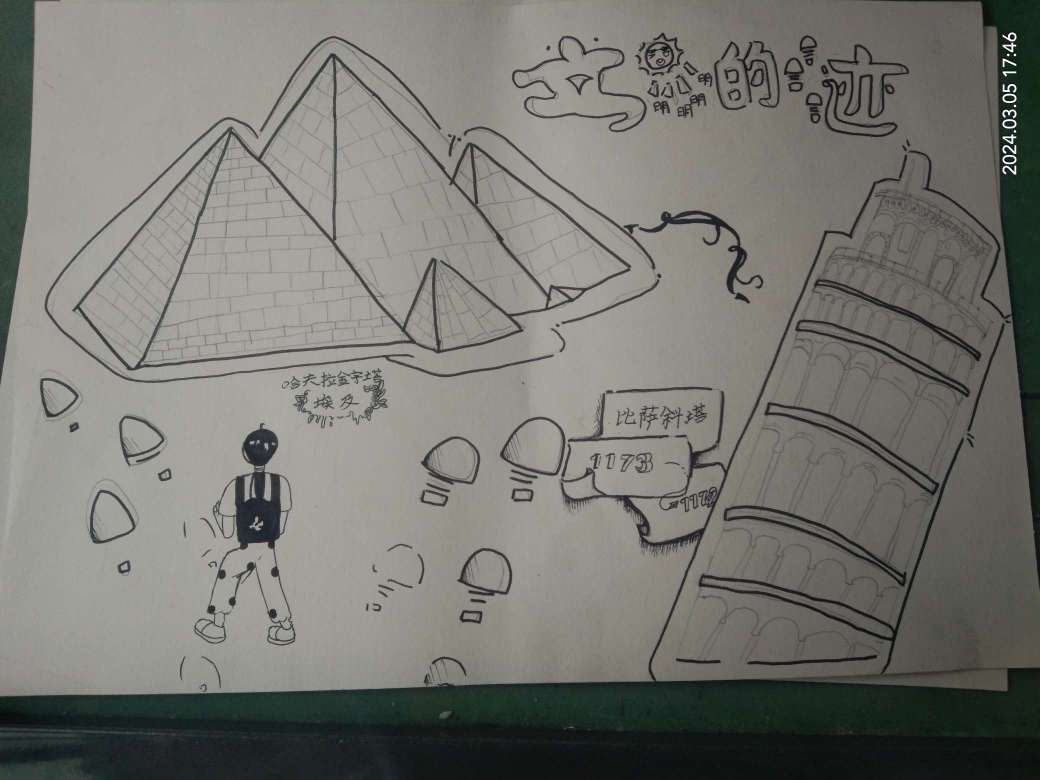 文明的迹
哈夫拉金字塔
埃及
比萨斜塔
1173
2024.03.05 17:46